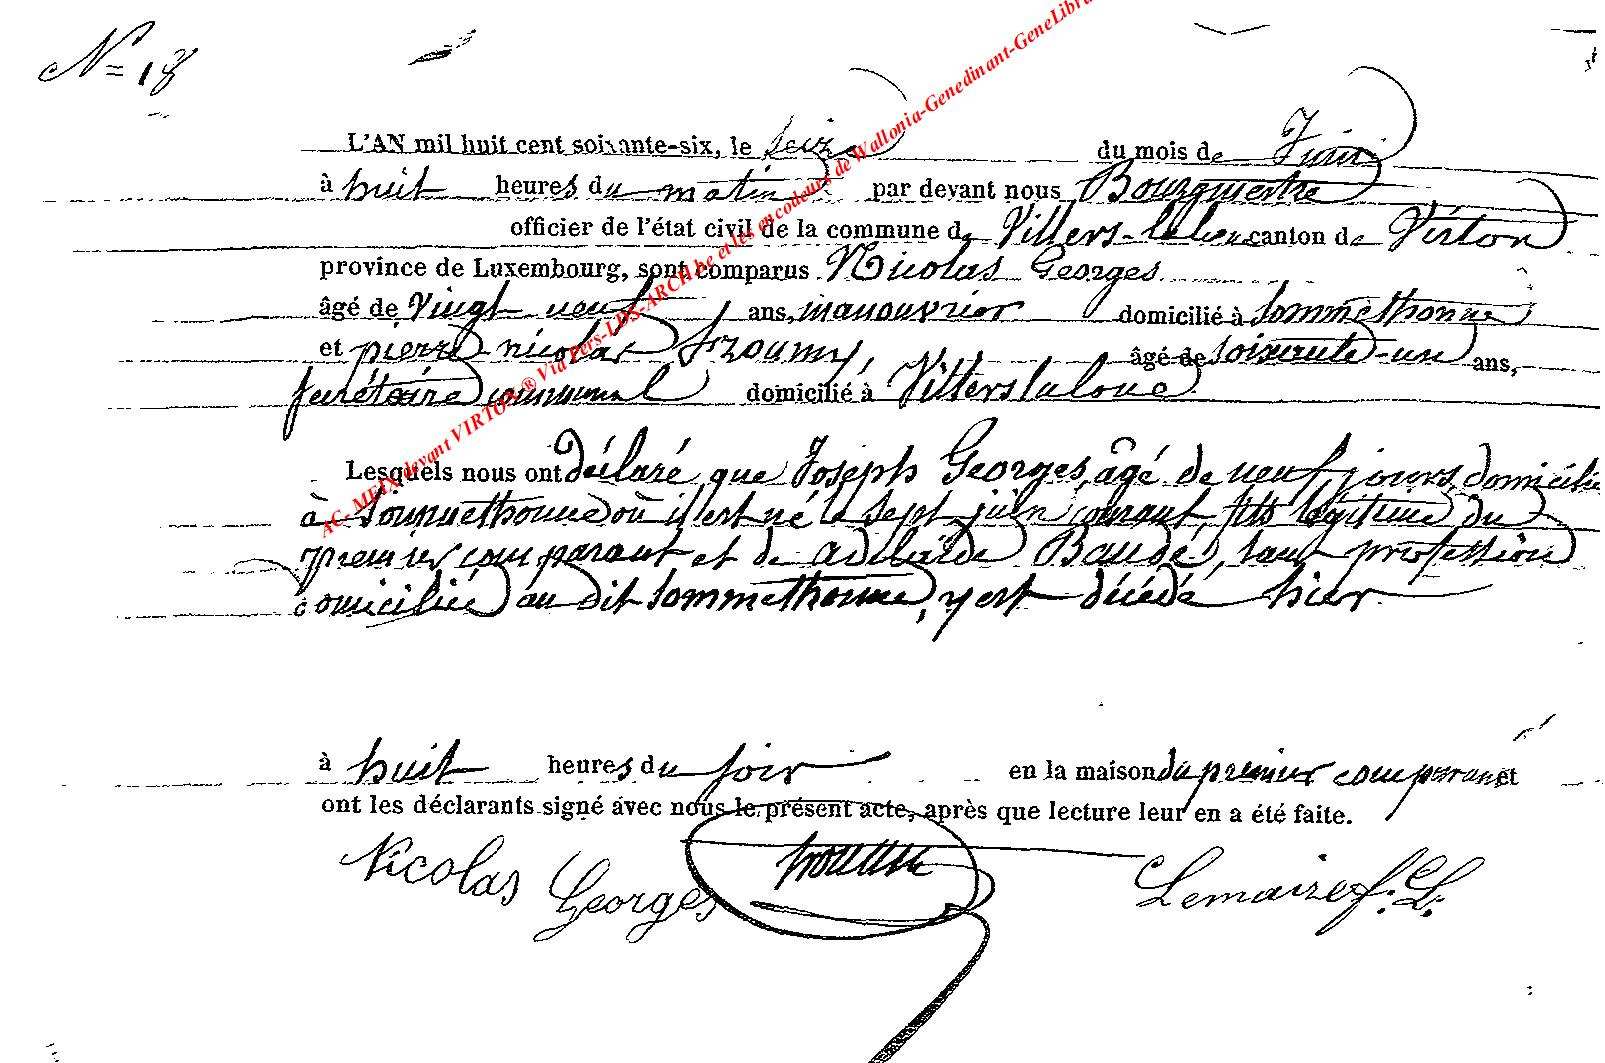 N= 18
L'AN mil huit cent soixante-six, le Seize du mois de Juin
à huit heures du matin par devant nous Bourgmestre
officier de l'état civil de la commune de Villers-laloue canton de Virton
province de Luxembourg, sont comparus Nicolas Georges
âgé de Vingt neuf ans, manouvrier domicilié à Sommethonne
et pierre nicolas âgé de soixante-un ans,
secrétaire communal domicilié à Villerslaloue
Lesquels nous ont déclaré que Joseph Georges, âgé de neuf jours, domicilié
à Sommethonne où il est né le sept juin courant, fils légitime du
premier comparant et de adelaïde Baudé, sans profession
domiciliée au dit Sommethonne, y est décédé hier
à huit heures du soir en la maison du premier comparant et
ont les déclarants signé avec nous le présent acte, après que lecture leur en a été faite.
Nicolas Georges Lemaire f. L.
AC- MEIX devant VIRTON ® Via Pers-LDS-ARCH be et les encodeurs de Wallonia-Genedinant-GeneLibra